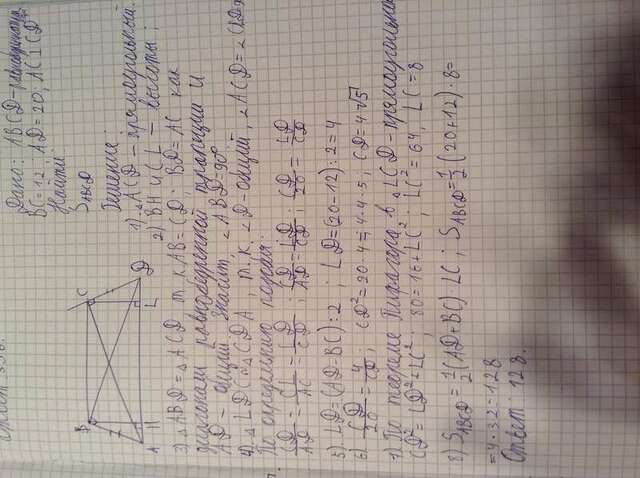 Ответ 336.
Дано: ABCD-равнобедренная
BC=12; AD=20; AC⊥CD
Найти:
S ABCD
Решение:
1) △ACD – прямоугольный.
2) BH и CL – высоты;
B
C
A
H
L
D
3) △ABD=△ACD т.к AB=CD; BD=AC как
диагонали равнобедренной трапеции и
AD – общий. Значит ∠ABD=90°
4) △LDC∾△CDA, т.к. ∠D-общий, ∠ACD=∠CLD
По определению подобия:
CD/AD = CL/AC = LD/CD ; CD/AD = LD/CD ; CD/20 = LD/CD
5) LD=(AD-BC):2 ; LD=(20-12):2=4
6. CD/20 = 4/CD ; CD²=20·4=4·4·5; CD=4√5
7) По теореме Пифагора в △LCD-прямоугольном
CD²=LD²+LC²; 80=16+LC²; LC²=64, LC=8
8) S ABCD = 1/2 (AD+BC)·LC ; S ABCD = 1/2 (20+12)·8=
=4·32=128
Ответ: 128.